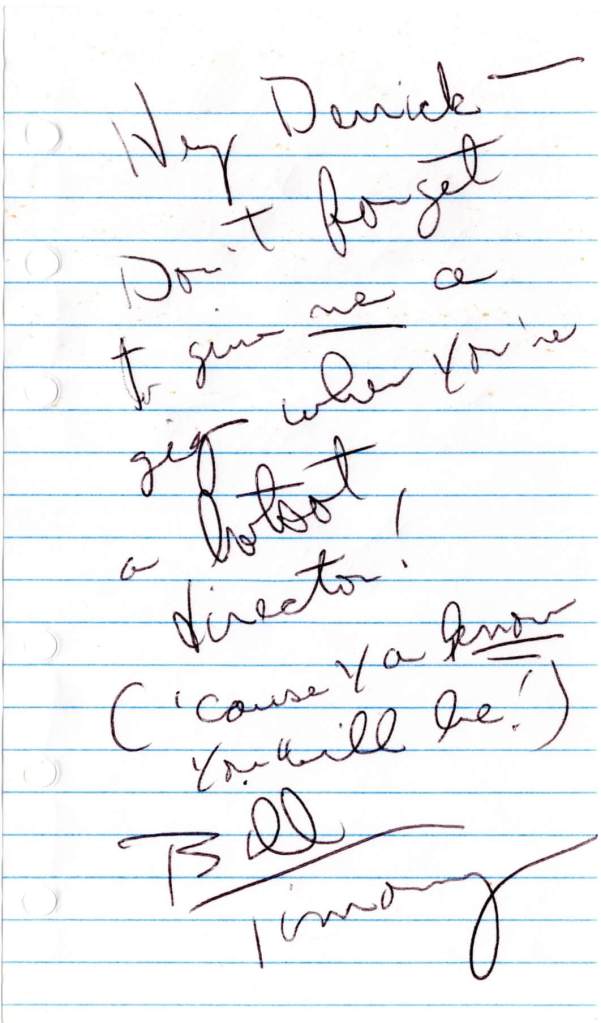 Hey Derrick —
Don't forget
to give me a
gig when you're
a hotsot
director!
('cause ya know
you will be!)
Bill